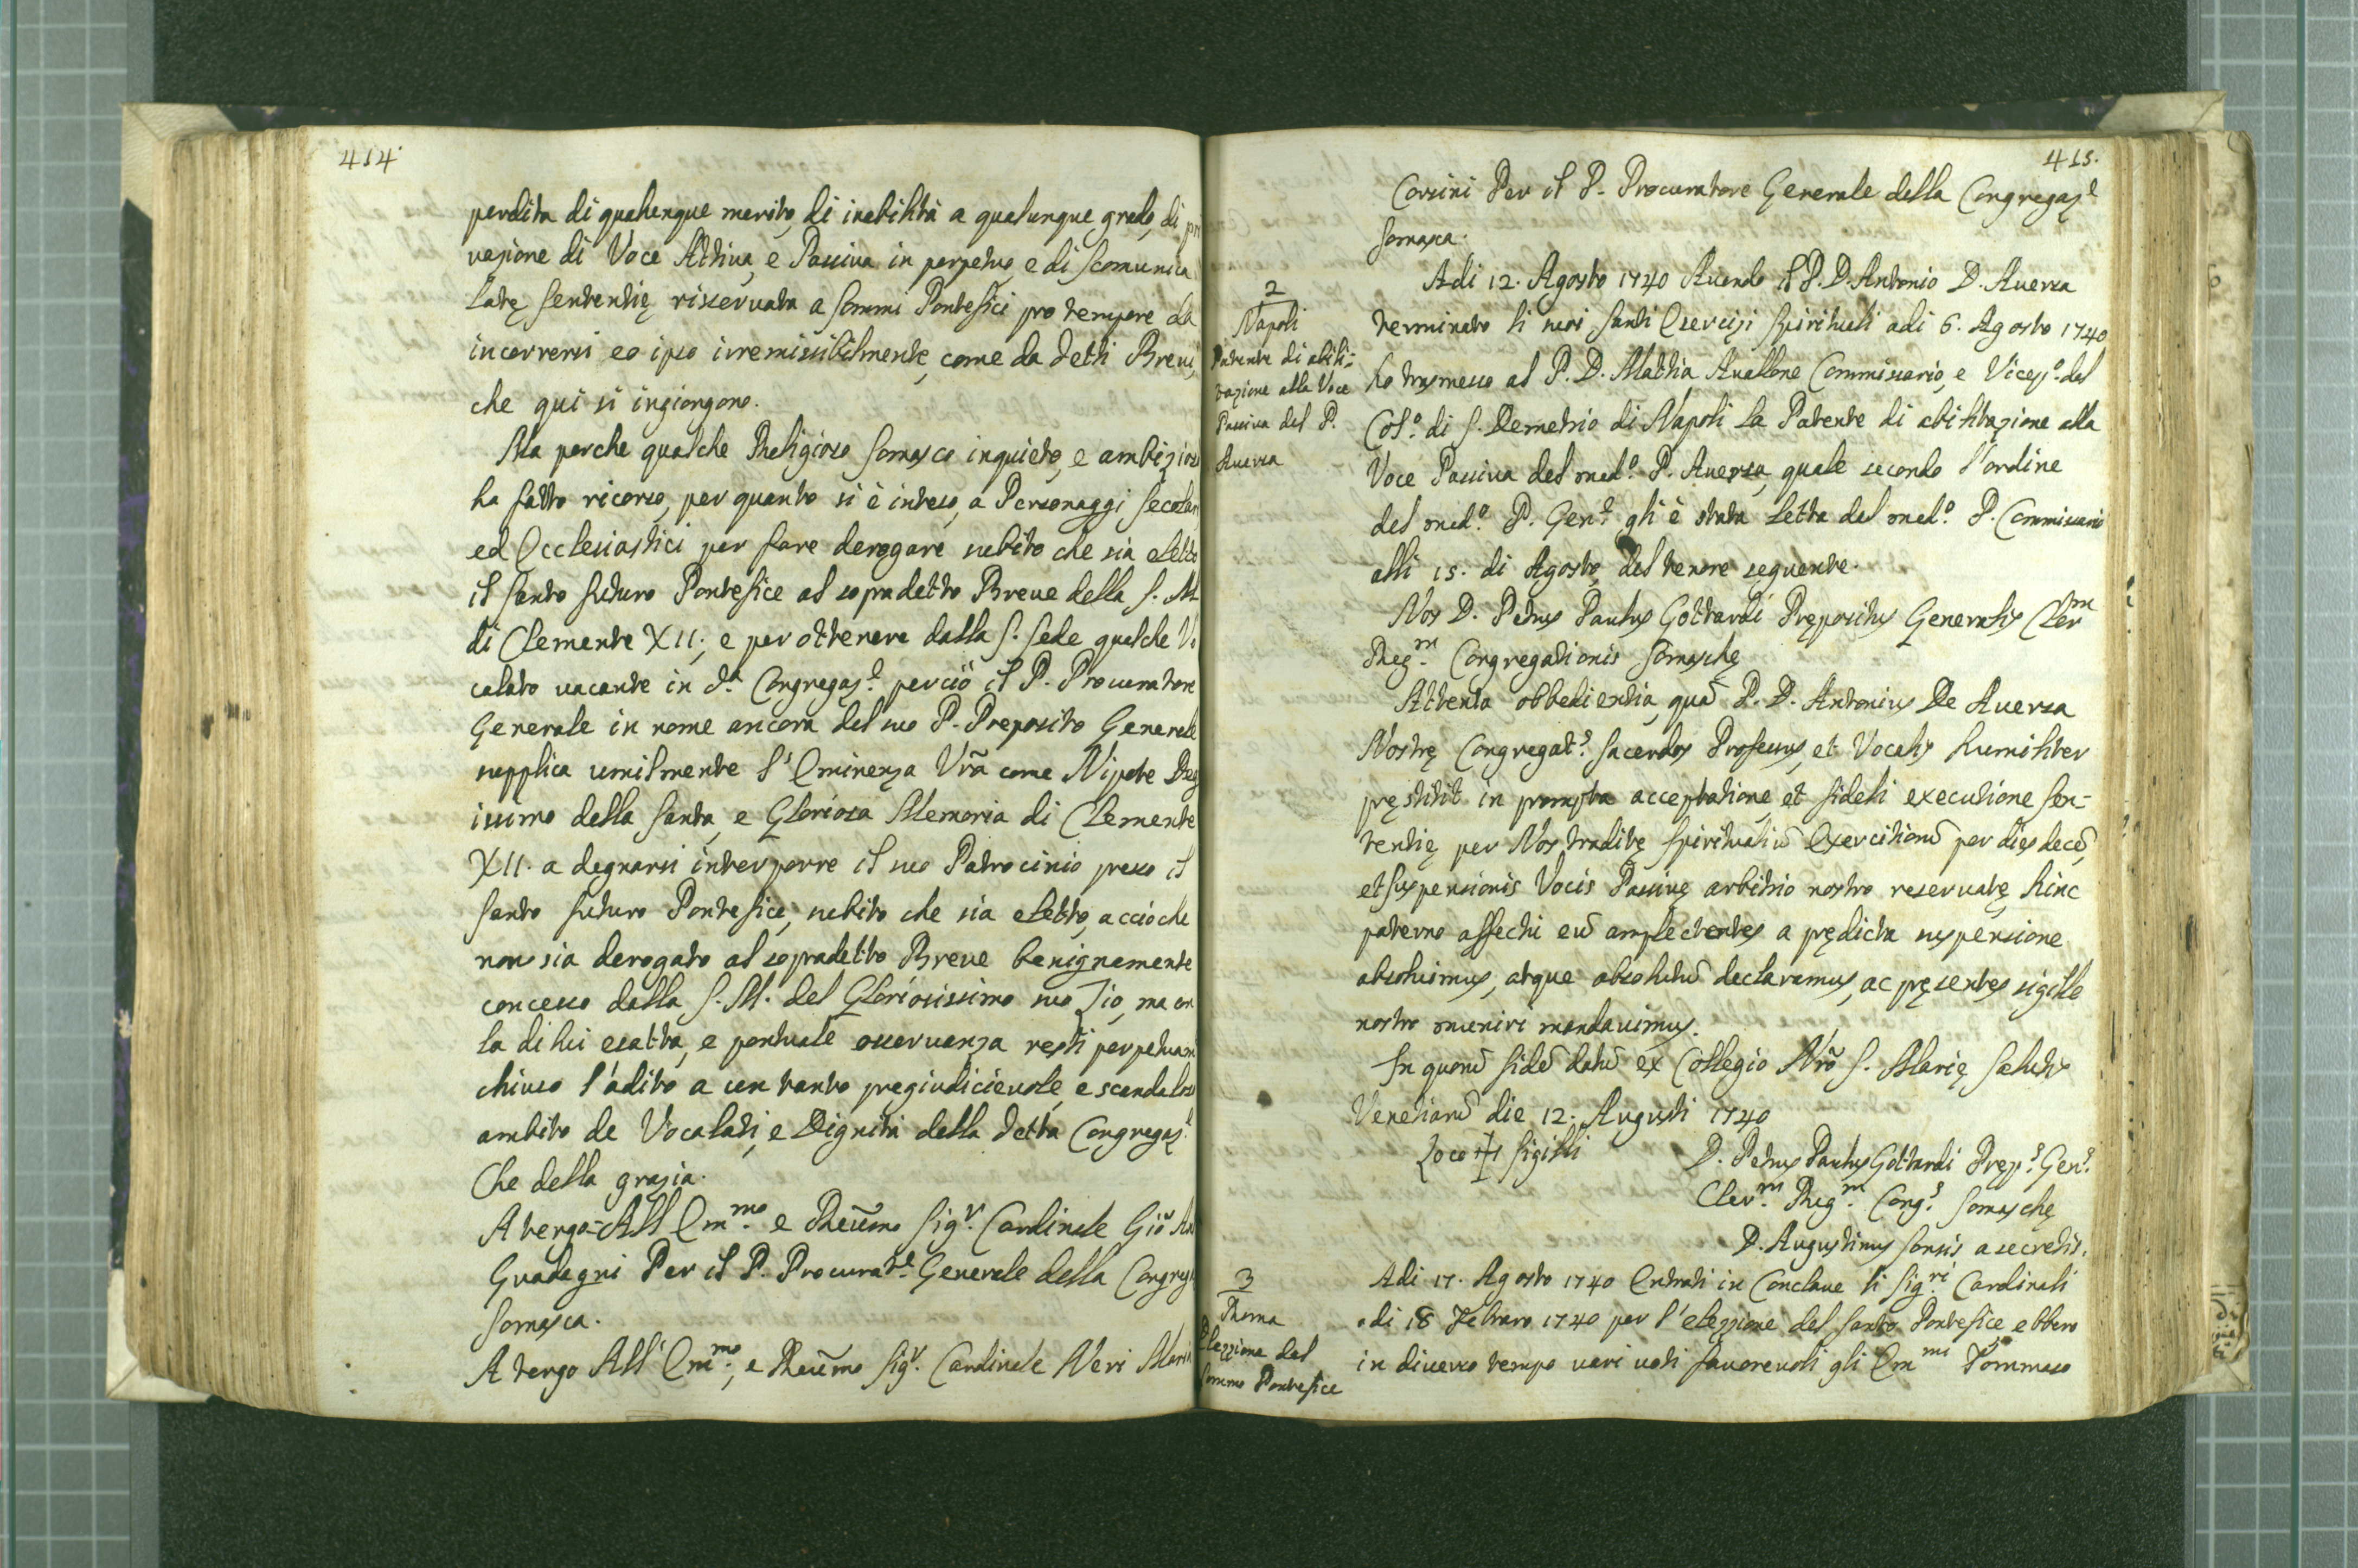 414.
perdita di qualunque merito, di inabilità a qualunque grado, di pri
vazione di Voce Attiva, e Passiva in perpetuo, e di scomunica
latę sententię riservata a sommi Pontefici pro tempore da
incorrersi eo ipso irremissibilmente, come da detti Brevi,
che qui si ingiongono.
Ma perche qualche Religioso Somasco inquieto, e ambizioso
ha fatto ricorso, per quanto si è inteso, a Personaggi secolari,
ed Ecclesiastici per fare derogare subito che sia eletto
il Santo futuro Pontefice al sopradetto Breve della S. M.
di Clemente XII; e per ottenere dalla S. Sede qualche Vo
calato vacante in d.ª Congregaz.e perciò il P. Procuratore
Generale in nome ancora del suo P. Preposito Generale
supplica umilmente l'Eminenza Vrã come Nipote Deg
issimo della Santa, e Gloriosa Memoria di Clemente
XII. a degnarsi interporre il suo Patrocinio presso il
Santo futuro Pontefice, subito che sia eletto, accioche
non sia derogato al sopradetto Breve benignamente
concesso dalla S. M. del Gloriosissimo suo Zio, ma con
la di lui esatta, e pontuale osservanza resti perpetuam
chiuso l'adito a un tanto pregiudicievole, e scandaloso
ambito de Vocalati, e Dignità della detta Congregaz.e
Che della grazia.
A tergo= All Em.mo e Reũmo Sig.r Cardinale Gio:
Guadagni Per il P. Procurat.e Generale della Congreg
Somasca.
A tergo All' Em.mo, e Reũmo Sig.r Cardinale Neri Maria
415.
Corsini Per il P. Procuratore Generale della Congregaz.e
Somasca.
2
Napoli
Patente di abili=
tazione alla Voce
Passiva del P.
Auersa
Adi 12. Agosto 1740 Auendo il P. D. Antonio D. Auersa
terminato li suoi santi Esercizi spirituali adi 6. Agosto 1740
ho trasmesso al P. D. Mattia Auallone Commissario, e Vicep.o del
Col.o di S. Demetrio di Napoli la Patente di abilitazione alla
Voce Passiva del med.o P. Auersa, quale secondo l'ordine
del med.o P. Gen.e gli è stata letta dal med.o P. Commissario
alli 15. di Agosto, del tenore seguente.
Nos D. Petrus Paulus Gottardi Prępositus Generalis Cler.m
Reg.m Congregationis Somaschę
Attenta obbedientia, quã P. D. Antonius De Auersa
Nostrę Congregat.s Sacerdos Professus, et Vocalis humiliter
pręstitit in prompta acceptatione, et fideli executione sen=
tentię per Nos traditę spiritualiũ Exercitionũ per dies decẽ,
et suspensionis Vocis Passivę arbitrio nostro reservatę, hinc
paterno affectu eũ amplectentes a prędicta suspensione
absoluimus, atque absolutũ declaramus, ac pręsentes sigillo
nostro muniri mandauimus.
In quorũ fidẽ datũ ex Collegio Nrõ S. Marię Salutis
Venetiarũ die 12. Augusti 1740
Loco + Sigilli
D. Petrus Paulus Gottardi Pręp.s Gen.s
Cler.m Reg.m Cong.s Somaschę
D. Augustinus Sonsis a secretis.
3
Roma
Elezzione del
Sommo Pontefice
Adi 17. Agosto 1740 Entrati in Conclave li Sig.ri Cardinali
adi 18 Febraro 1740 per l'elezzione del Santo Pontefice ebbero
in diuerso tempo vari voti fauoreuoli gli Em.mi Tommaso